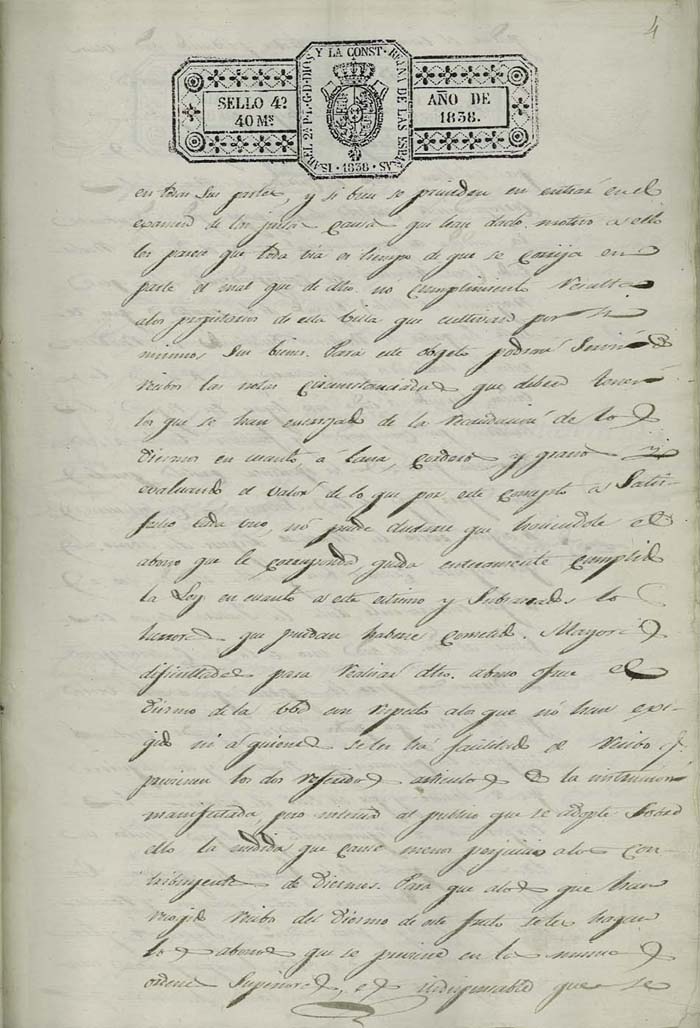 4
ISABEL 2ª P. L. G. D. DIOS Y LA CONST. REYNA DE LAS ESPAÑAS · 1838 ·
SELLO 4º
40 Ms
AÑO DE
1838.
en todas sus partes, y si bien se prescinden en entrar en el
examen de las justas causas que han dado motivo a ello
les parece que toda via es tiempo de que se corrija en
parte el mal que de dho. no cumplimiento resulta
a los propietarios de esta Villa que cultivan por si
mismos sus bienes. Para este objeto podran servir de
recibos las notas circunstanciadas que deben tener
los que se han encargado de la recaudacion de los
Diezmos en cuanto á Lana, corderos y granos y
evaluando el valor de lo que por este concepto a satis-
fecho cada uno, no puede dudarse que haciendole el
abono que le corresponda, queda enteramente cumplida
la Ley en cuanto a este estremo y subsanados los
herrores que puedan haberse cometido. Mayores
dificultades para realizar dho. abono ofrece el
Diezmo de la con respecto a los que no han exi-
gido ni á quienes se les há facilitado el recibo q.
previenen los dos referidos articulos de la instruccion
manifestada, pero interesa al publico que se adopte sobre
ello la medida que cause menos perjuicio a los con-
tribuyentes de Diezmos. Para que a los que han
recogido recibo del Diezmo de este fruto se les hagan
los abonos que se previene en las mismas
ordenes superiores, es indispensable que se